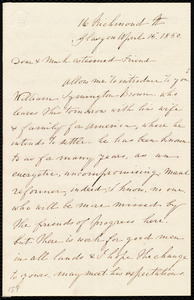 16 Richmond St
Glasgow April 16. 1850.
Dear & Much esteemed Friend
Allow me to introduce to you
William Symington Brown who
leaves this tomorrow with his wife
& family for America, where he
intends to settle. he has been known
to us for many years, as an
energetic, uncompromising, Manly
reformer, indeed, I know, no one
who will be more missed by
the friends of progress here.
but there is work for good men
in all lands & I hope the change
to yours may meet his expectations.